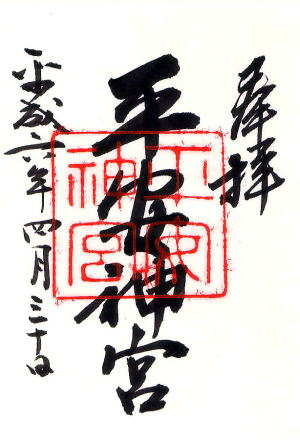 奉拝
平安神宮
平安神宮
平成六年四月三十日